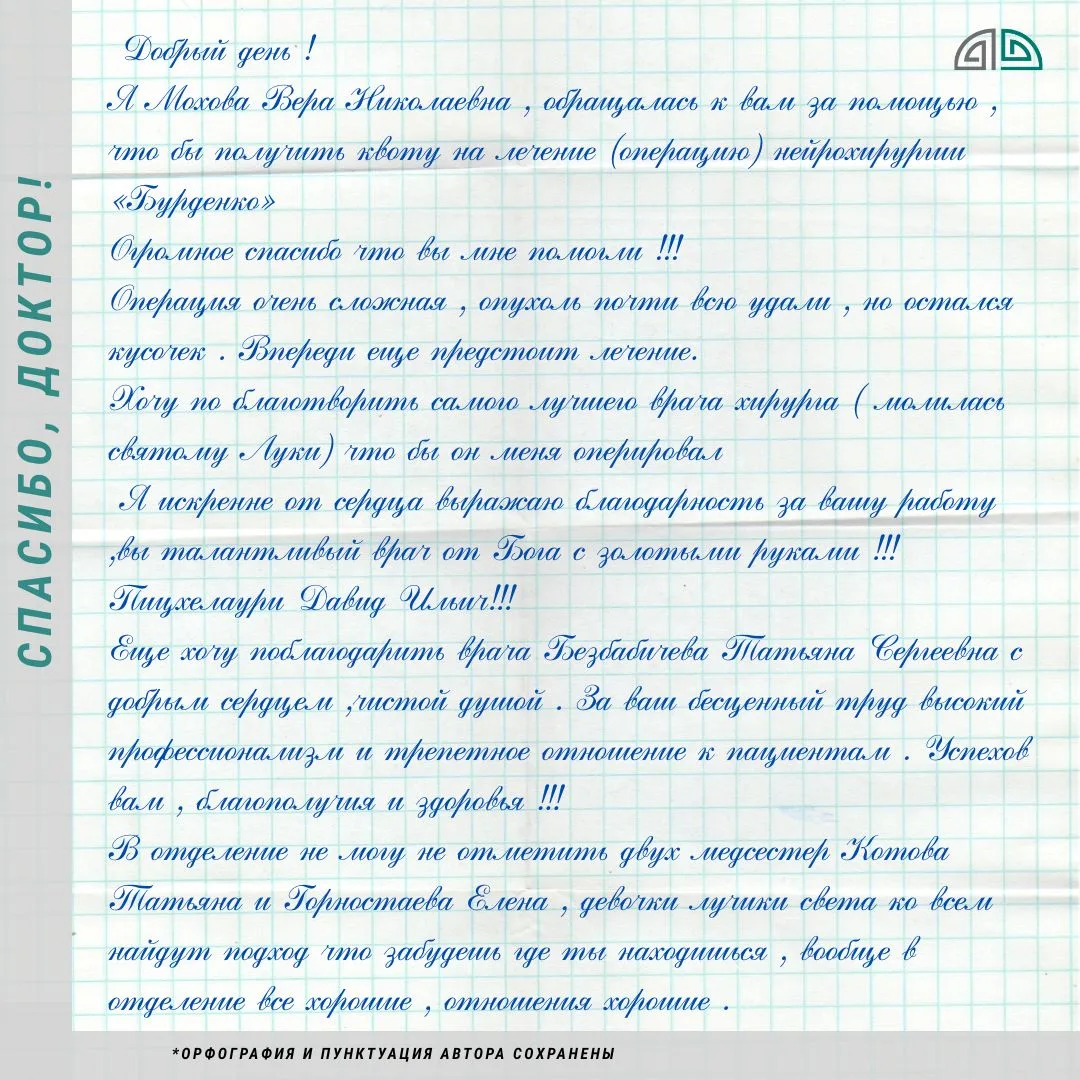 Добрый день !
Я Мохова Вера Николаевна , обращалась к вам за помощью ,
что бы получить квоту на лечение (операцию) нейрохирургии
«Бурденко»
Огромное спасибо что вы мне помогли !!!
Операция очень сложная , опухоль почти всю удали , но остался
кусочек . Впереди еще предстоит лечение.
Хочу по благотворить самого лучшего врача хирурга ( молилась
святому Луки) что бы он меня оперировал
Я искренне от сердца выражаю благодарность за вашу работу
,вы талантливый врач от Бога с золотыми руками !!!
Пицхелаури Давид Ильич!!!
Еще хочу поблагодарить врача Безбабичева Татьяна Сергеевна с
добрым сердцем ,чистой душой . За ваш бесценный труд высокий
профессионализм и трепетное отношение к пациентам . Успехов
вам , благополучия и здоровья !!!
В отделение не могу не отметить двух медсестер Котова
Татьяна и Горностаева Елена , девочки лучики света ко всем
найдут подход что забудешь где ты находишься , вообще в
отделение все хорошие , отношения хорошие .
СПАСИБО, ДОКТОР!
*ОРФОГРАФИЯ И ПУНКТУАЦИЯ АВТОРА СОХРАНЕНЫ